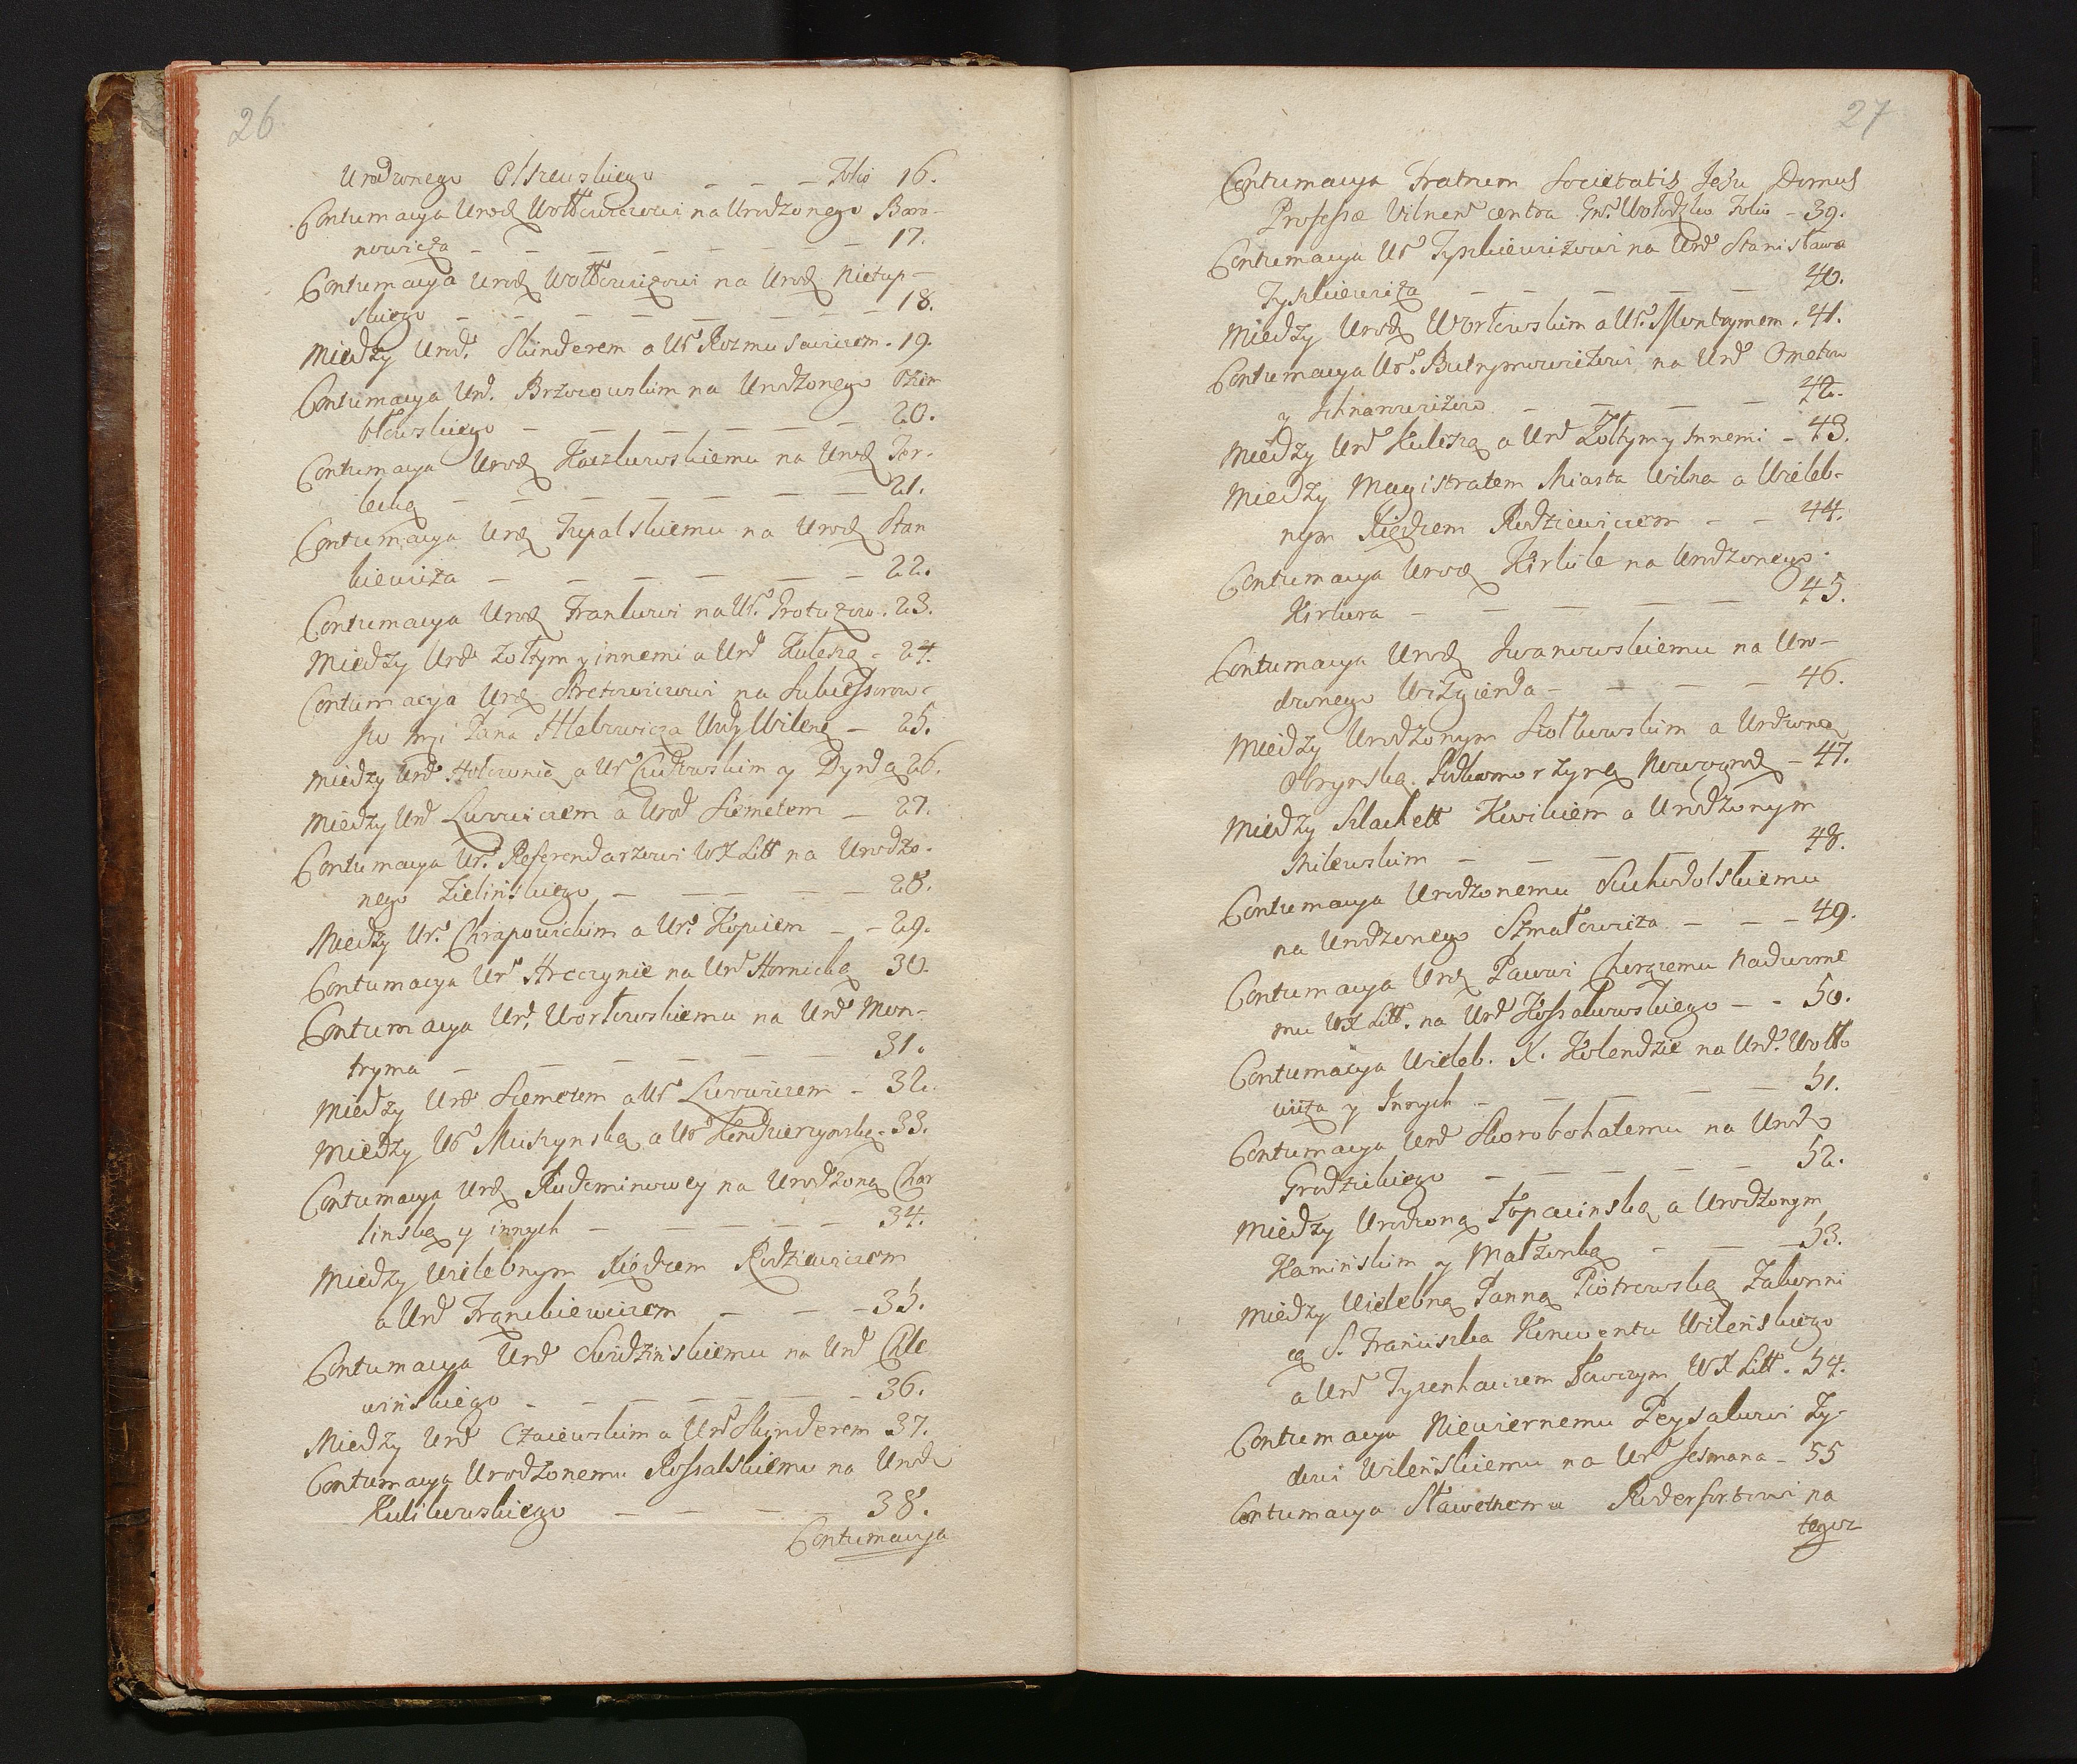 26.
Urodzonego Olszewskiego _ _ _ Folio 16.
Contumacya Urodz Wołłowiczowi na Urodzonego Baro-
nowicza _ _ _ _ _ _ _ 17.
Contumacya Urodz Wołłowiczowi na Urodz Nietup-
skiego _ _ _ _ _ _ _ _ 18.
Między Urod. Skinderem a Ur Rozmusowiczem. 19.
Contumacya Urd. Brzozowskim na Urodzonego Dziem
błowskiego _ _ _ _ _ _ 20.
Contumacya Urodz Kozłowskiemu na Urodz Ter-
lecką _ _ _ _ _ _ _ 21.
Contumacya Urdz Trypolskiemu na Urodz Stan
kiewicza _ _ _ _ _ _ 22.
Contumacya Urodz Frankowi na Ur. Protozow. 23.
Między Urd Zołtym y innemi a Urd Kuleszą - 24.
Contumacya Urdz Stretowiczowi na Sukcessorow
Jw Imci Pana Hlebowicza Wdy Wileńs _ 25.
Między Urd Hołownią a Ur Cudowskim y Dyrdą 26.
Między Urd Lwowiczem a Urod Siemetem _ 27.
Contumacya Ur. Referendarzowi WX Litt na Urodzo-
nego Zielińskiego _ _ _ _ _ 28.
Między Ur. Chrapowickim a Ur. Kopciem _ _ 29.
Contumacya Ur Hreczynie na Urd Hornicką 30.
Contumacya Ur. Worłowskiemu na Urd Mon-
tryma _ _ _ _ _ _ 31.
Między Urd Siemetem a Ur Lwowiczem - 32.
Między Ur Muszynską a Ur Kendzierzynską - 33.
Contumacya Urdz Rudominowey na Urodzoną Char
linską y innych _ _ _ _ _ 34.
Między Wielebnym Xiędzem Rodziewiczem
a Urd Franckiewiczem _ _ _ 35.
Contumacya Urd Swidzińskiemu na Urd Chle
wińskiego _ _ _ _ _ _ 36.
Między Urd Czaiewskim a Urd Skinderem 37.
Contumacya Urodzonemu Rossalskiemu na Urodz
Kulikowskiego _ _ _ _ 38.
Contumacya
27
Contumacya Fratrum Societatis Jesu Domus
Professæ Vilnen contra Gnr. Wołodzko Folio - 39.
Contumacya Ur Tyszkiewiczowi na Urd Stanisława
Tyszkiewicza _ _ _ _ _ 40.
Między Urodz Worłowskim a Ur. Montrymem. 41.
Contumacya Ur. Butrymowiczowi na Urd Ometow
y Ichnarowiczow _ _ _ _ 42.
Między Urd Kuleszą a Urd Zołtym y Innemi - 43.
Między Magistratem Miasta Wilna a Wieleb-
nym Xiędzem Rodziewiczem - - 44.
Contumacya Urodz Kirkile na Urodzonego
Kirkora _ _ _ _ _ 45.
Contumacya Urodz Iwanowskiemu na Uro-
dzonego Wizgierda _ _ _ _ 46.
Między Urodzonym Siołkowskim a Urdzoną
Obrynską Podkomorzyną Nowogrodz - 47.
Między Szlachett Kwikiem a Urodzonym
Milewskim _ _ _ _ _ 48.
Contumacya Urodzonemu Suchodolskiemu
na Urodzonego Szmatowicza _ _ _ 49.
Contumacya Urdz Pacowi Chorązemu Nadworne
mu WX Litt. na Urd Kossakowskiego _ - 50.
Contumacya Wieleb. X. Kolendzie na Urd. Wołło
wicza y Innych _ _ _ _ _ 51.
Contumacya Urd Skorobohatemu na Urodz
Grodzickiego _ _ _ _ _ 52.
Między Urodzoną Łopacinską a Urodzonym
Kamińskim y Małżonką _ _ _ 53.
Między Wielebną Panną Piotrowską Zakonni
cą S. Franciszka Konwentu Wileńskiego
a Urd Tyzenhauzem Łowczym WX Litt. 54.
Contumacya Niewiernemu Peysakowi Zy-
dowi Wileńskiemu na Ur Jesmana _ 55
Contumacya Sławetnemu Ruderfortowi na
tegoz